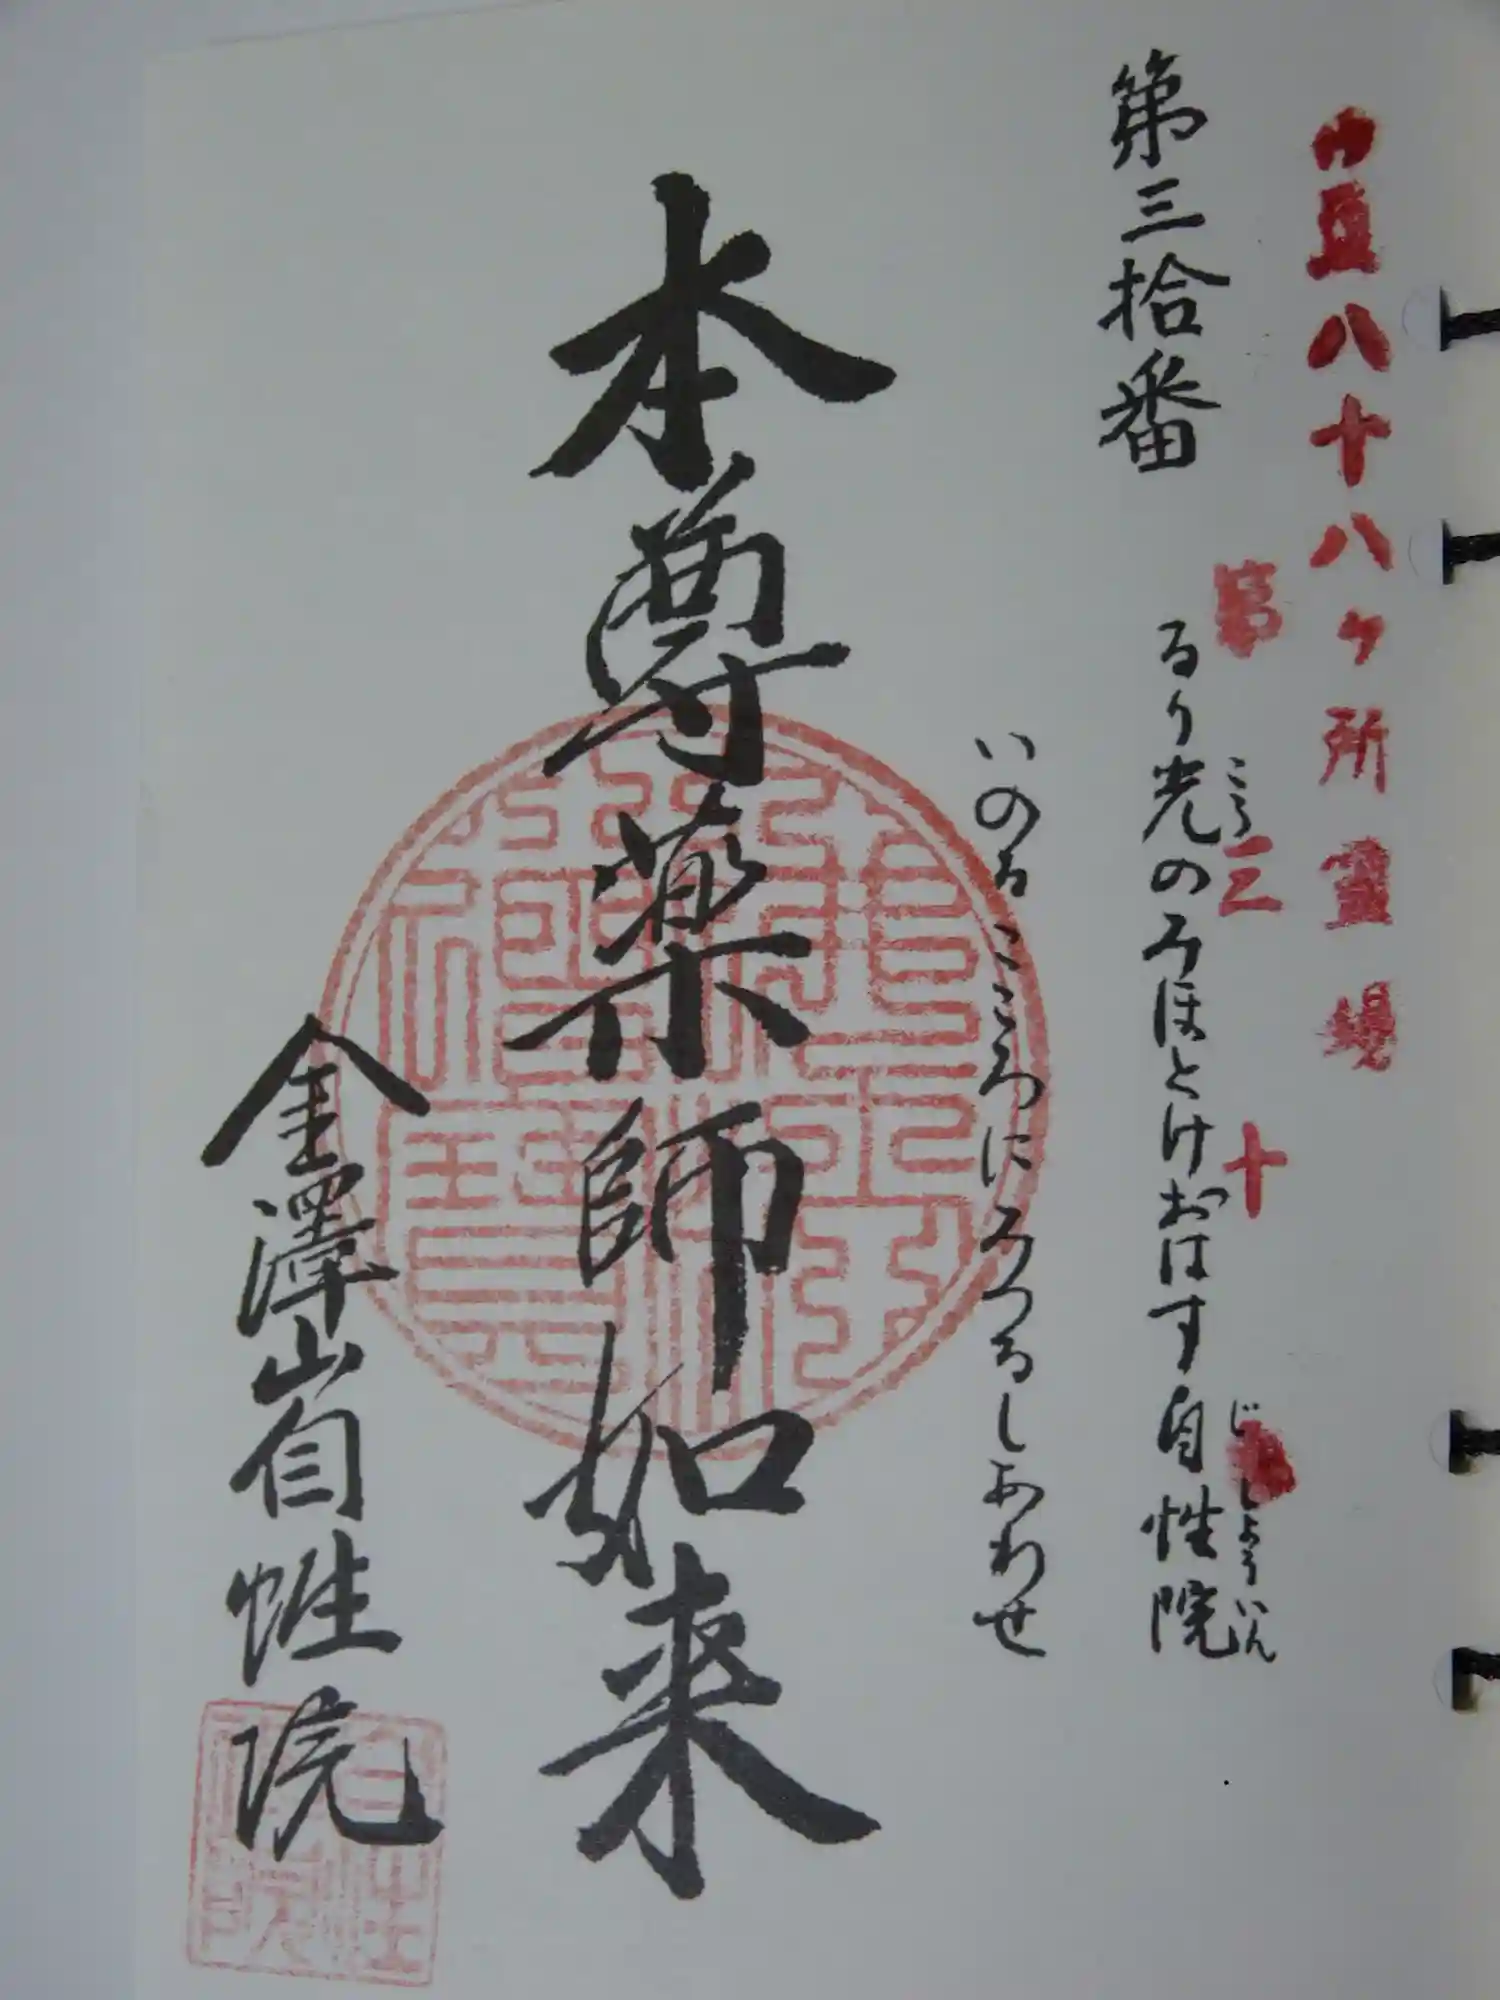 八十八ヶ所霊場
第三十番
第三拾番
るり光のみほとけおはす自性院
こう
じしょういん
いのるこころにみつるしあわせ
本尊薬師如来
金澤山自性院
自性院